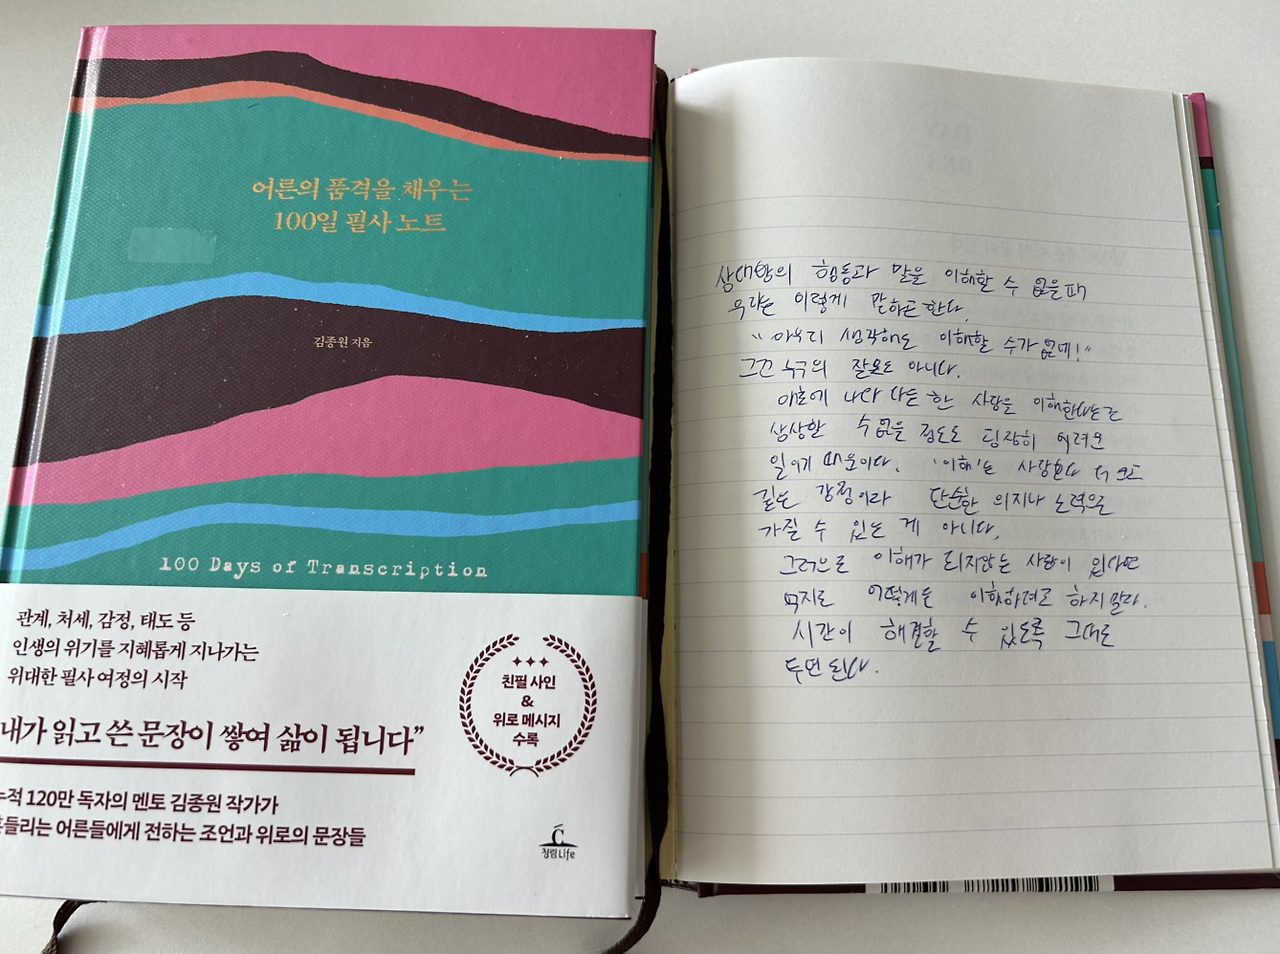 어른의 품격을 채우는
100일 필사 노트
김종원 지음
100 Days of Transcription
관계, 처세, 감정, 태도 등
인생의 위기를 지혜롭게 지나가는
위대한 필사 여정의 시작
내가 읽고 쓴 문장이 쌓여 삶이 됩니다”
누적 120만 독자의 멘토 김종원 작가가
흔들리는 어른들에게 전하는 조언과 위로의 문장들
친필 사인
&
위로 메시지
수록
청림Life
상대방의 행동과 말을 이해할 수 없을때
우리는 이렇게 말하곤한다.
“아무리 생각해도 이해할 수가 없네!”
그건 누구의 잘못도 아니다.
애초에 나와 다른 한 사람을 이해한다는건
상상할 수없을 정도로 굉장히 어려운
일이기 때문이다. ‘이해’는 사랑보다 더 크고
깊은 감정이라 단순한 의지나 노력으로
가질 수 있는 게 아니다.
그러므로 이해가 되지않는 사람이 있다면
억지로 어떻게든 이해하려고 하지말라.
시간이 해결할 수 있도록 그대로
두면 된다.